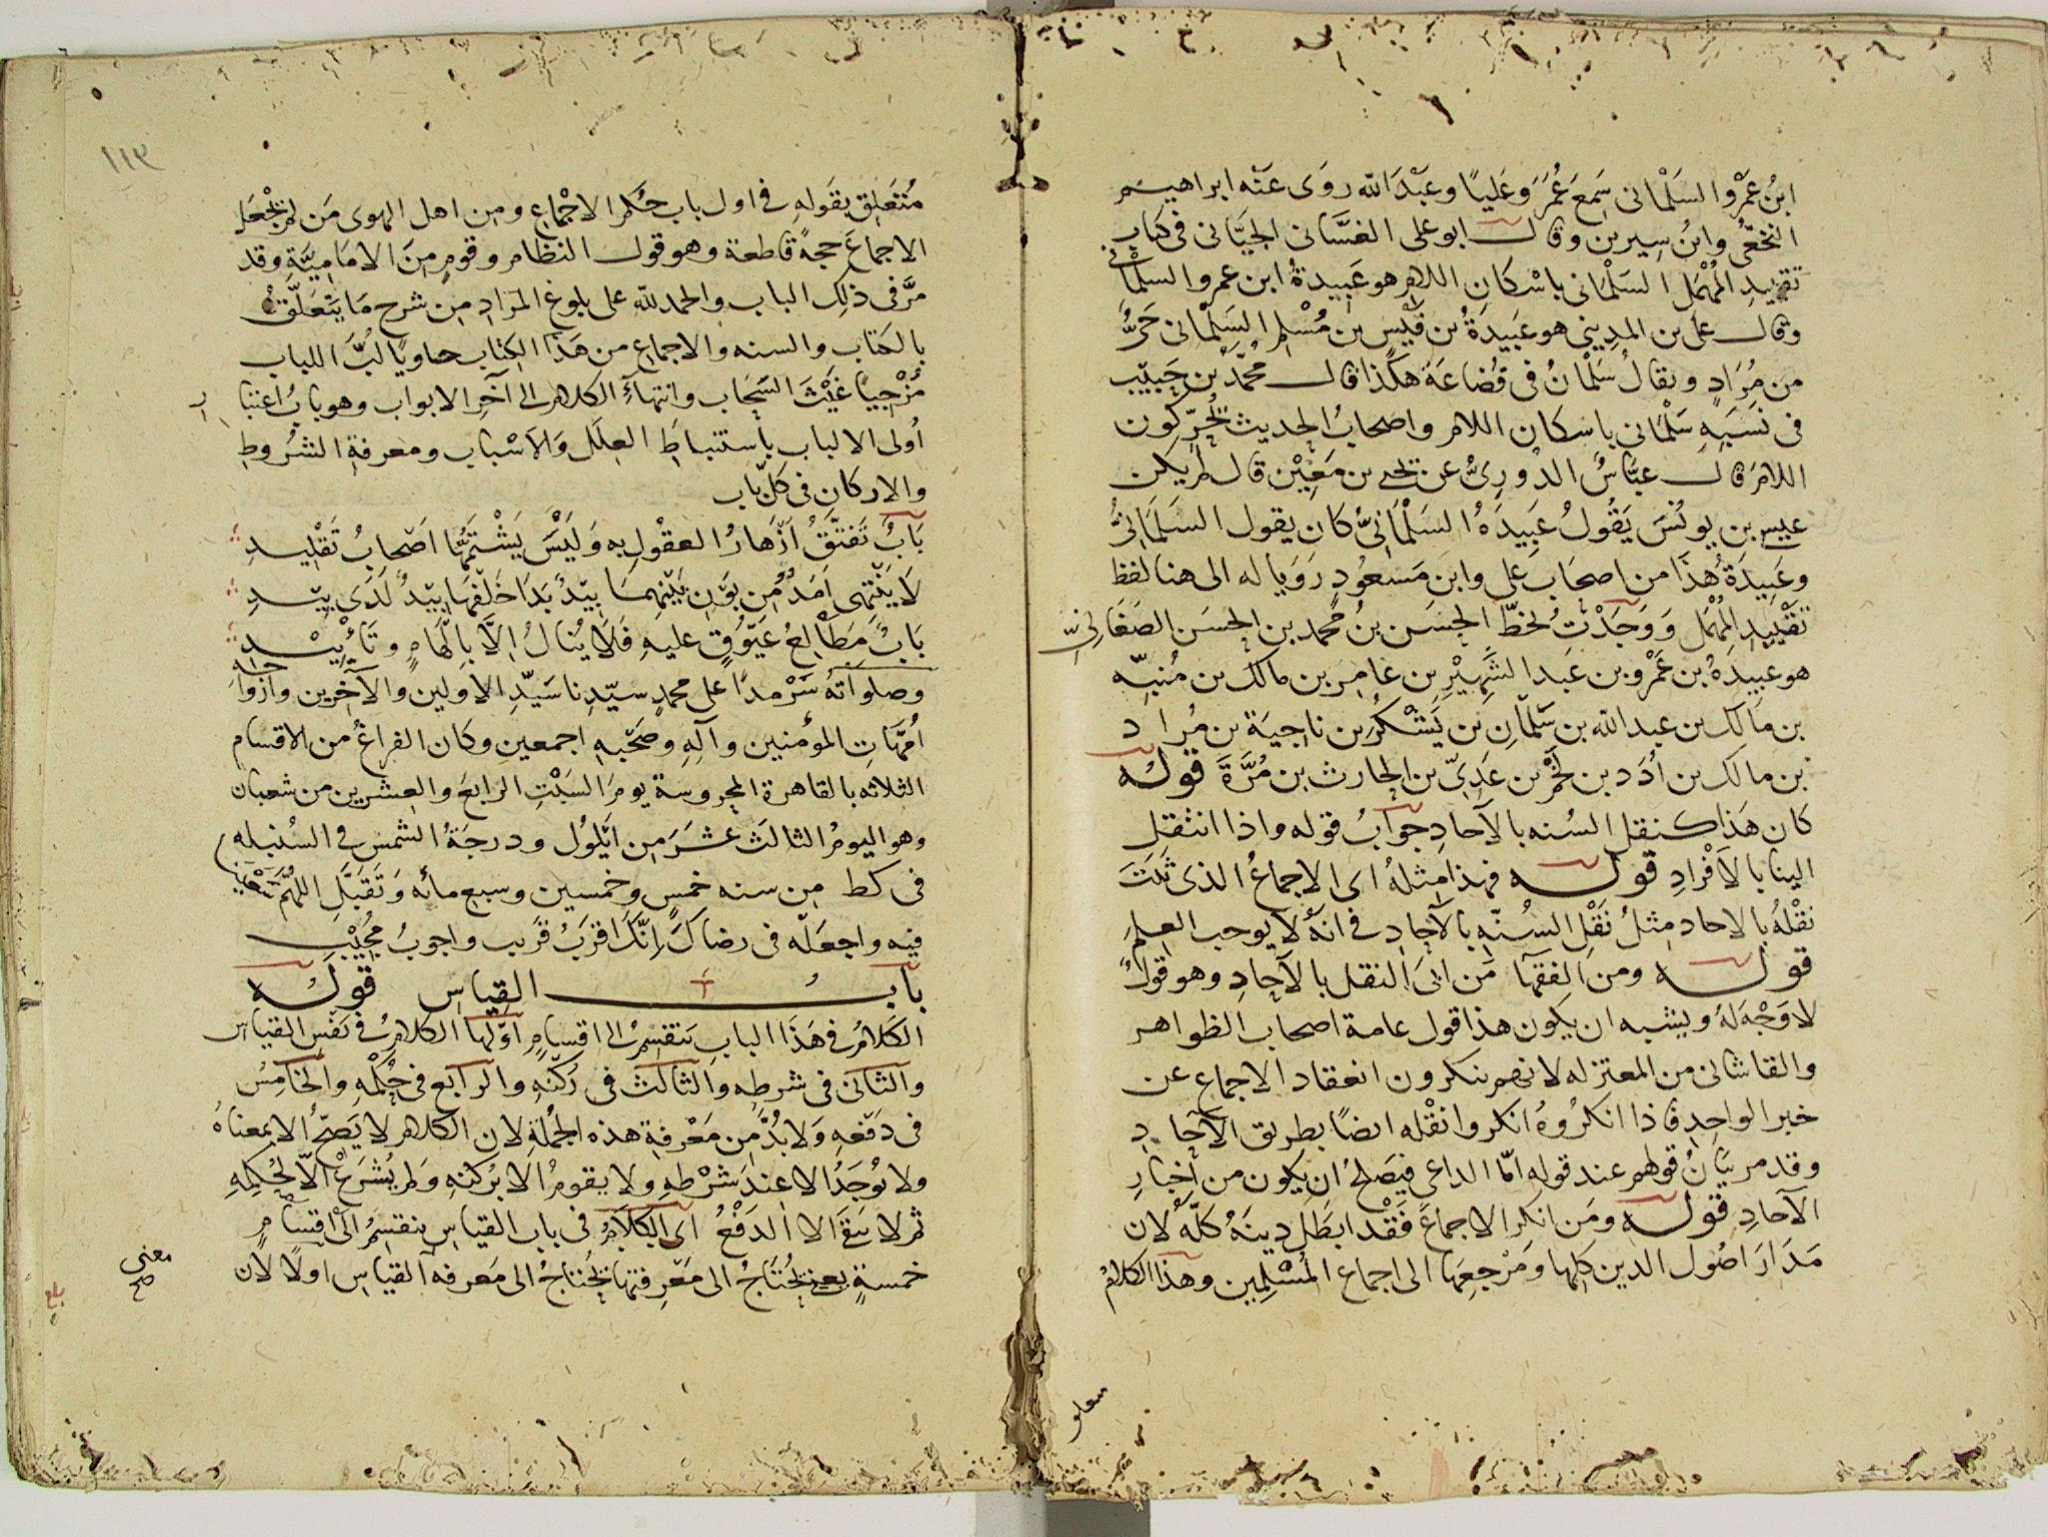 ابنُ عَمْرو السَلْمانى سَمِعَ عُمَرَ وَعَليًا وعبْدَ الله روَى عَنْه ابراهيم
النخعىُّ وابنُ سِيرين وقال ابو على الغسَّانى الجيَّانى فى كتاب
تقييد المُهْمَل السَلْمَانى باسْكانِ اللام هو عَبِيدةُ ابن عمرو السلمانى
وقال على بن المدِينى هو عَبيدَةُ بن قَيْس بن مُسْلم السَلْمانى حَىٌّ
من مُرَادٍ ويقالُ سَلْمَانُ فى قُضَاعَةَ هكذا قال محمّد بن حَبيْب
فى نسَبَهِ سَلْمَانى باسكان اللام واصحابُ الحديث يُحَرِّكون
اللامَ قال عبَّاسٌ الدورىُّ عن يحيى بن مَعِيْن قال لم يكن
عيسى بن يونُسَ يَقُولُ عَبِيدَهُ السَلْمَانىُّ كان يقول السَلَمَانىُّ
وعَبِيدَةُ هذا من اصحَاب على وابن مَسعُودٍ رَوَيا له الى هنا لفظ
تَقْيِيدِ المُهْمَل وَوَجَدْتُ بخطّ الحسَن بن محمد بن الحسَن الصَغَانىّ
هو عبيدهُ بن عَمْرو بن عَبد الشَّهِيْرِ بن عامِر بن مالك بن مُنبّه
بن مَالك بن عبد الله بن سَلْمَانِ بن يَشْكُرَ بن ناجيَة بن مُراد
بن مالك بن أُدَد بن لَخْم بن عَدِىّ بن الحارث بن مُرَّةَ قوله
كان هَذا كنقل السُنه بالآحادِ جوابُ قوله واذا انتقِل
الينا بالاَفْرادِ قوله فهذا مِثلهُ اى الاجماعُ الذى ثَبَتَ
نقْلهُ بالاحاد مِثلُ نَقْلِ السُنّهِ بالآحادِ فى انهُ لا يوجب العِلمَ
قوله ومن الفقهَا مَن ابىَ النقل بالآحادِ وهو قولٌ
لا وَجْهَ لهُ ويشبه ان يكون هذا قول عامة اصحاب الظواهر
والقاشانى من المعتزله لانهم ينكرون انعقاد الاجماع عن
خبر الواحِدِ فاذا انكرُوهُ انكروا نقْله ايضًا بطريق الآحاد
وقد مر بيَانُ قولهم عند قوله امّا الداعى فيَصلحُ ان يكون من اخبارِ
الآحادِ قوله ومَن انكر الاجماعَ فَقْد ابطَل دينَهُ كلّهُ لان
مَدَارَ اصُول الدين كلها ومَرْجعِهَا الى اجماع المُسْلِمِين وهذا الكلامُ
سعلو
١١٣
مُتعَلِق بقَولهِ فى اول باب حُكم الاجْماعِ ومن اهل الهوى مَن لم يَجْعَل
الاجماعَ حجةً قاطعة وهو قول النظام وقومٍ مِنَ الامَامِيَّةِ وقد
مرَّ فى ذلِك الباب والحمد لله على بلوغ المَرَادِ من شرح مَا يتعَلّقُ
بالكتاب والسنه والاجماع من هَذَا الكِتَاب حاويًا لُبَّ اللباب
مُزْجِيًا غَيْثَ السَّحَاب وانتهآء الكلام الى آخر الابواب وهو بابُ اعتبا ر
اُولى الالباب باستنباطِ العِلَل وَالاَسْباب ومعرفةِ الشُروطِ
والاركان فى كلّ باب
بَابٌ تَفَتَّقُ اَزْهَارُ العقْولِ بهِ وَلَيْسَ يَشْتَمُّهَا اَصْحابُ تَقْلِيدِ
لَا يَنْتَهِى اَمَدٌ مِن بَوْنِ بَيْنِهمَا بِيْدٌ بَدَا خَلْفَهَا بِيْدٌ لَدَى بِيْدِ
بَابٌ مَطَالِعُ عَيُّوقٍ عليهِ فَلَا يُنَالُ اِلَّا بِالْهَامٍ وتَأْيِيْدِ
وصلواتهُ سَرْمدًا على محمدٍ سيّدِنا سَيّدِ الاولين والآخِرين وازواجه
اُمَّهَاتِ المؤمنين وآلهِ وصَحْبهِ اجمعين وكان الفراغُ من الاقسام
الثلاثه بالقاهرة المحروسة يومَ السَبْتِ الرابعَ والعِشرين من شعبان
وهو اليومُ الثالث عشَرَ مِن ايْلُول ودرجَةُ الشمس فى السُنبله
فى كط من سنه خمسٍ وخمسين وسبع مائه وَتَقَبَّلِ اللهُمَّ
فيه واجعَلْه فى رضاكَ اِنَّكَ اقرَبُ قرَيب واجوبُ مُجيْب
بابُ القياس قوله
الكَلامُ فى هَذَا البابِ يَنقسِمُ الى اقسامٍ اوّلها الكلامُ فى نَفْس القياس
والثانى فى شرطِهِ والثالث فى رُكْنِهِ والرابع فى حُكْمِهِ والخامِسُ
فى دَفْعهِ وَلا بُدَّ مِن مَعْرفةِ هذه الجُملةِ لان الكلام لا يَصحُّ الا بمعناهُ
ولا يُوجَدُ الا عند شَرْطِهِ ولا يقومُ الا برُكنهِ وَلم يُشرَعْ الّا لِحُكمِهِ
ثم لا يبقَى الا الدَفْعُ اى الكلامُ فى باب القياسِ ينقسمُ الى اقسامٍ
خمسةٍ يعنى يُحتَاجُ الى مَعْرفتها يُحْتاجُ الى مَعرفه القياسِ اولًا لان
معنى
صح
بلغ